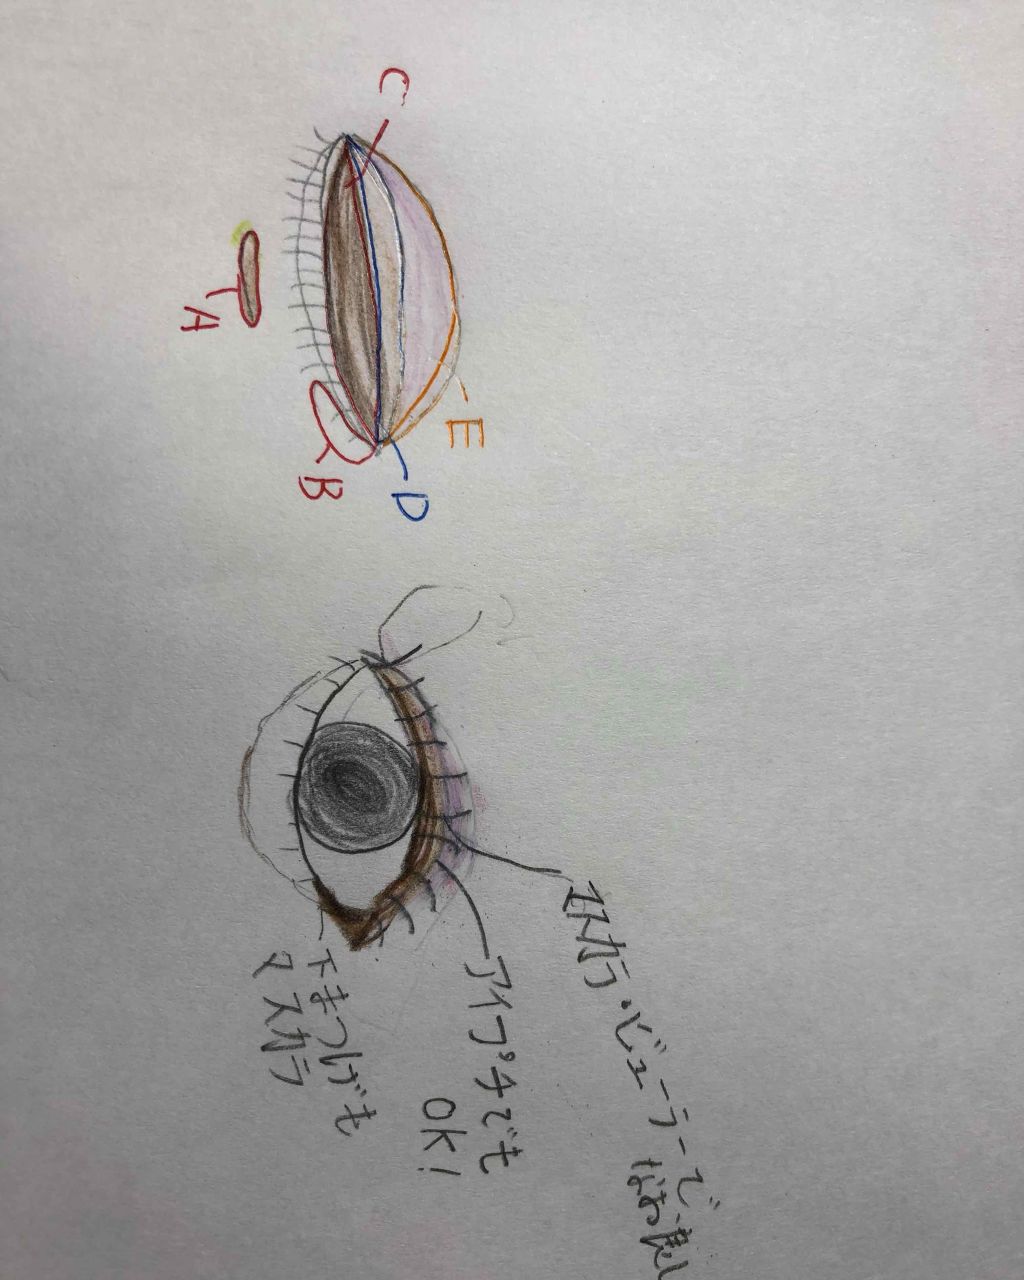 C
E
A
B
D
マスカラ・ビューラーで
なお良し
アイプチでも
OK!
下まつげも
マスカラ